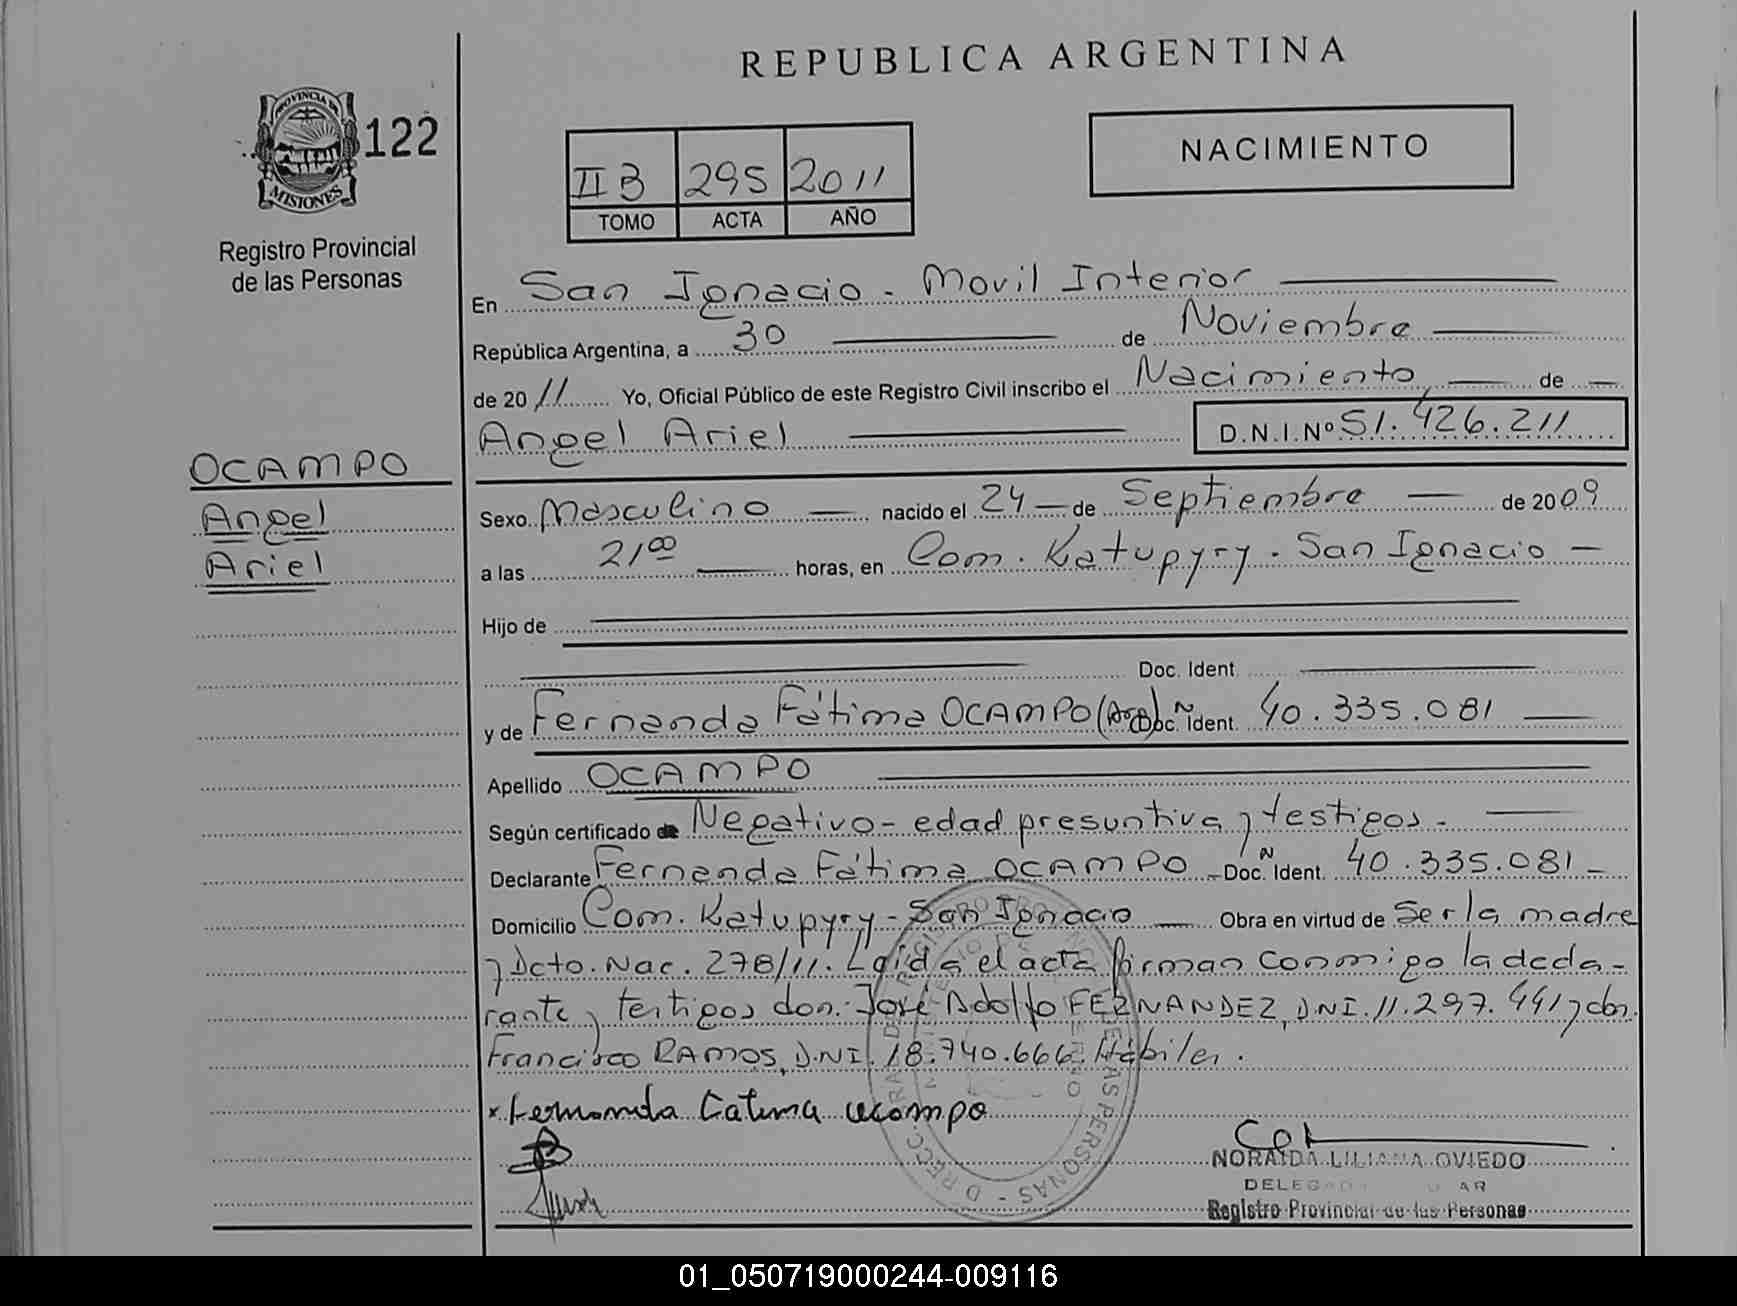 REPUBLICA ARGENTINA
PROVINCIA DE
MISIONES
122
Registro Provincial
de las Personas
II B 295 2011
TOMO ACTA AÑO
NACIMIENTO
En San Ignacio - Movil Interior
República Argentina, a 30 de Noviembre
de 2011 Yo, Oficial Público de este Registro Civil inscribo el Nacimiento, de
Angel Ariel D.N.I.Nº 51.426.211
OCAMPO
Angel
Ariel
Sexo Masculino nacido el 24 de Septiembre de 2009
a las 21 00 horas, en Com. Katupyry. San Ignacio
Hijo de
Doc. Ident.
y de Fernanda Fátima OCAMPO (Arg) Doc. Ident. 40.335.081
Apellido OCAMPO
Según certificado de Negativo - edad presuntiva y testigos.
Declarante Fernanda Fátima OCAMPO Doc. Ident. 40.335.081
Domicilio Com. Katupyry - San Ignacio Obra en virtud de Ser la madre
y Dcto. Nac. 278/11. Leída el acta firman conmigo la decla-
rante y testigos don: José Adolfo FERNANDEZ, D.N.I. 11.297.441 y don.
Francisco RAMOS, D.N.I. 18.740.666. Hábiles.
x Fernanda Fatima ocampo
NORAIDA LILIANA OVIEDO
Registro Provincial de las Personas
01_050719000244-009116